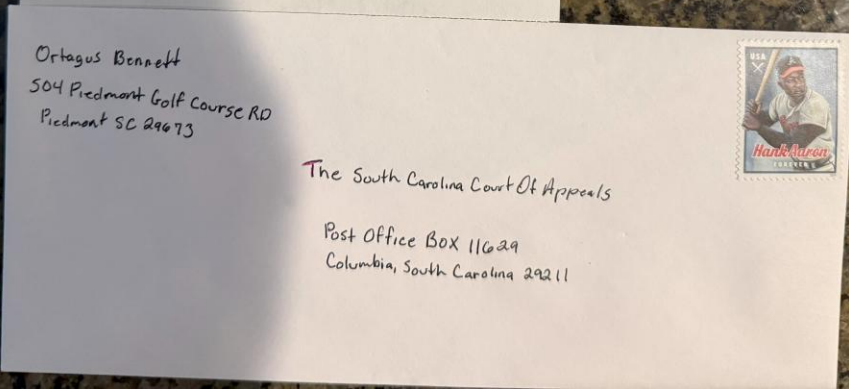 Ortagus Bennett
504 Piedmont Golf Course RD
Piedmont SC 29673
USA
Hank Aaron
FOREVER
The South Carolina Court Of Appeals
Post Office Box 11629
Columbia, South Carolina 29211